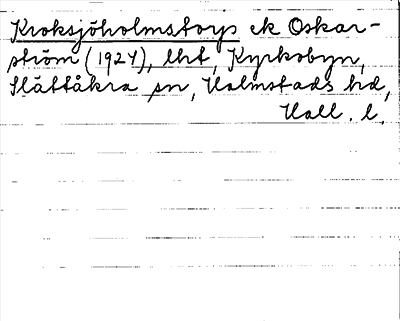 Kroksjöholmstorp ek Oskar-
ström (1924), lht, Kyrkobyn,
Slättåkra sn, Halmstads hd,
Hall. l.